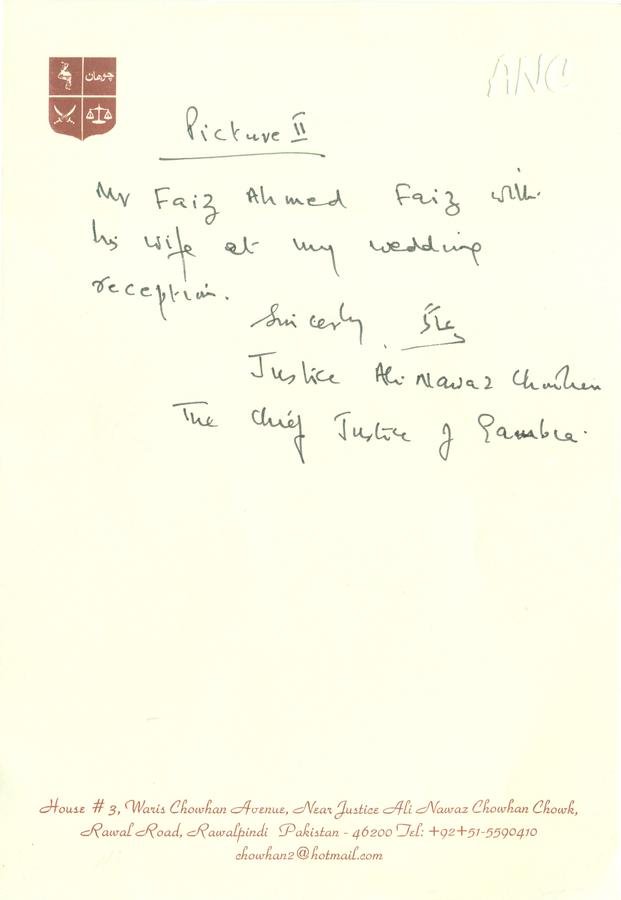 چوهان
ANC
Picture II
Mr Faiz Ahmed Faiz with
his wife at my wedding
reception.
Sincerly
Justice Ali Nawaz Chowhan
The Chief Justice of Gambia.
House # 3, Waris Chowhan Avenue, Near Justice Ali Nawaz Chowhan Chowk,
Rawal Road, Rawalpindi Pakistan - 46200 Tel: +92+51-5590410
chowhan2@hotmail.com